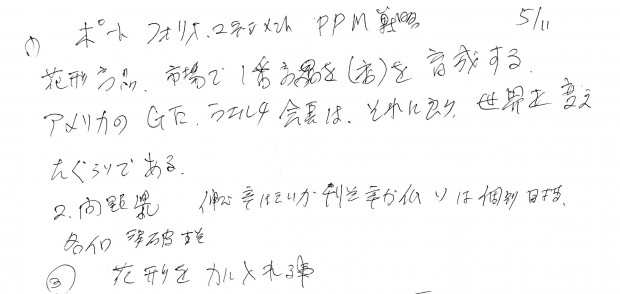 (1) ポートフォリオ.マネジメント PPM戦略 5/11
花形商品、市場で1番商品を(店)を育成する.
アメリカのGE.ウエルチ会長は、それにより、世界を変え
たぐらいである.
2.問題児 伸び率はいいが利益率が低い は個別目標、
各個
③ 花形をカルメれる事